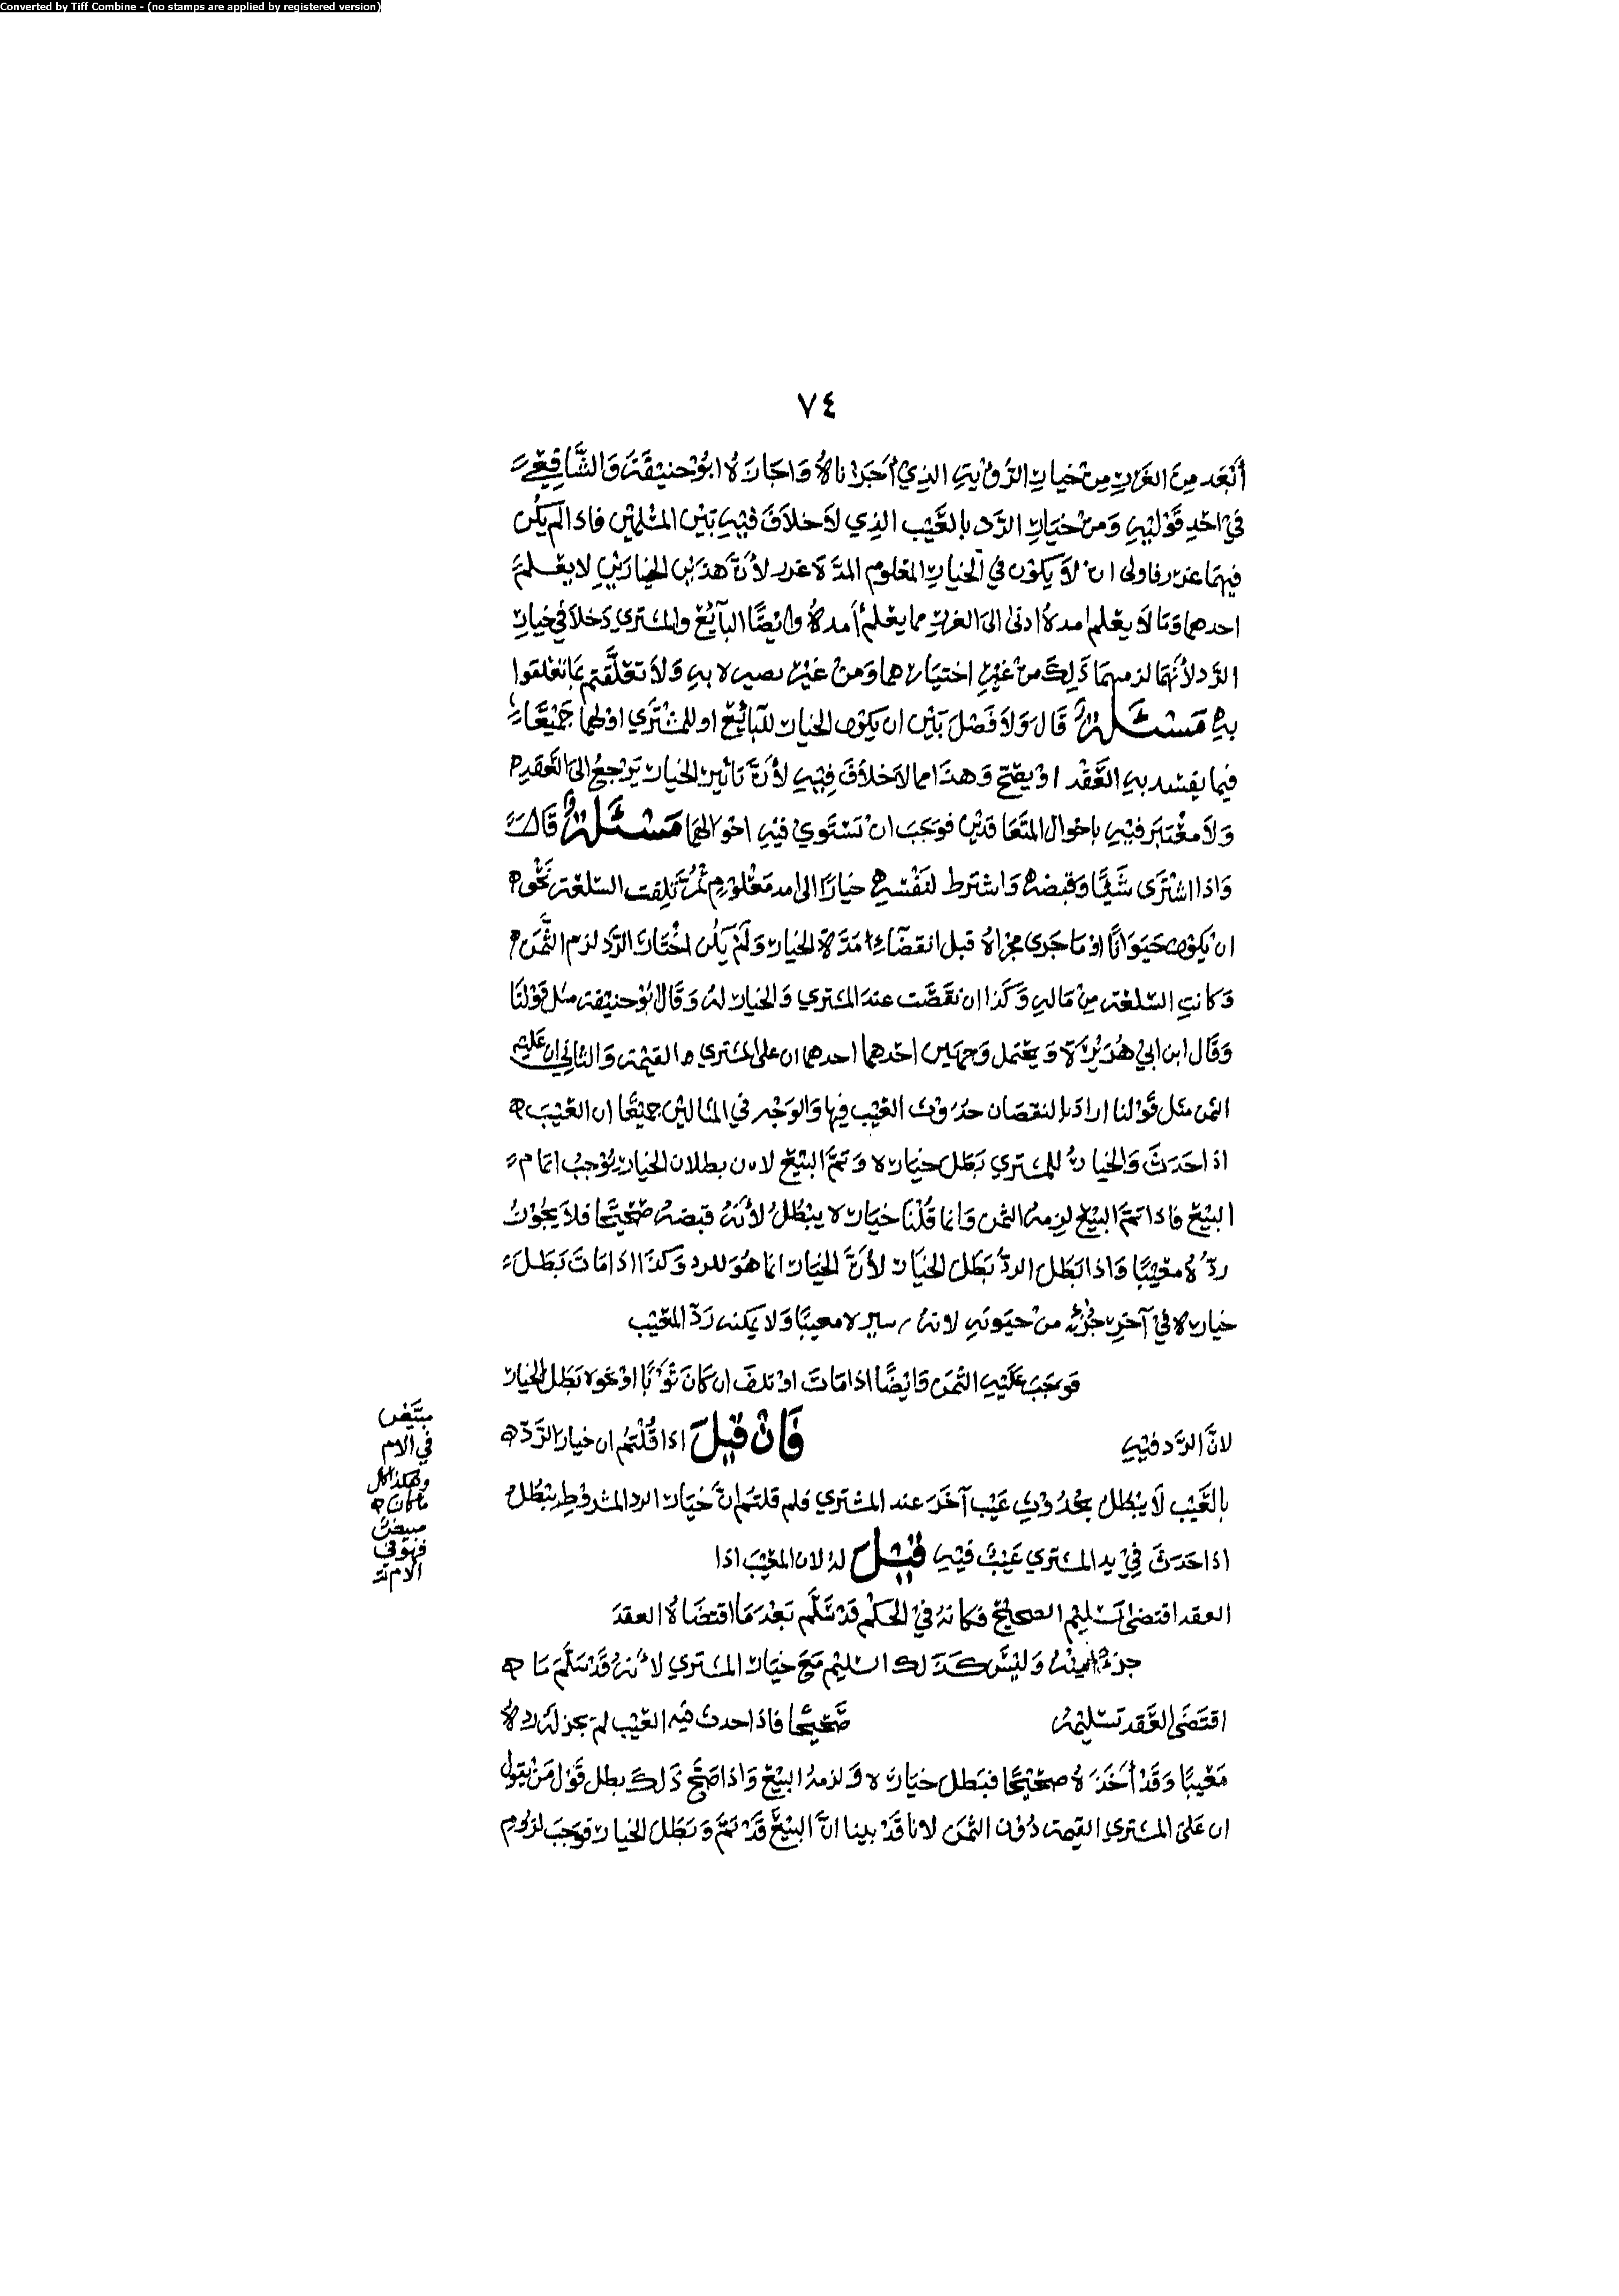 Converted by Tiff Combine - (no stamps are applied by registered version)
٧٤
أبْعَد مِنَ الغَررِ مِنْ خيارِ الرُّؤيَةِ الذِي أجَزْنَاهُ وَاجَازَهُ ابُوْحنيْفَةَ وَالشَّافِعِيّ
فيْ احَدِ قَوْليْهِ وَمِنْ خيَارِ الرَّد بالعَيْب الذِي لاَ خلاَفَ فيْهِ بَيْن المسْلميْن فاذا لَمْ يَكُن
فيهمَا غرر فاولى ان لاَ يكوْن في الخيارِ المعْلومِ المدَّة غرر لأنَّ هذَين الخيارَيْنِ لا يعْلمُ
احدهما وَمَا لاَ يعْلم امده ادنى الى الغررِ مما يعْلم أمده وايْضًا البآئِعْ والمشتريْ دَخلاَ فيْ خيارِ
الرّد لأنَّهمَا لزمهمَا ذَلِكَ منْ غيْرِ اختيَارهما وَمنْ غيْر بصيره بهِ وَلاَ تعَلَّقتم بمَا تعَلقوا
بهِ مَسْئَلَةٌ قَالَ وَلاَ فَصْلَ بَيْن ان يكوْن الخيَار للبآئِعْ او للمشْتَري اوْ لهما جَميْعًا
فيما يفسُد بهِ العَقْد اوْ يصِحّ وَهذا مما لاَ خلاَفَ فِيْهِ لأنَّ تأثيْر الخيار يَرْجعُ الىَ العَقدِ
وَلاَ معْتبَر فيْهِ باحْوال المتَعَاقديْن فوَجَبَ انْ تسْتَوِيْ فيْهِ احْوالهما مَسْئَلَةٌ قَالَ
وَاذا اشْتَرَى شَيْئًا وَقبَضهُ وَاشتَرط لنَفْسهِ خيارًا الى امد مَعْلوْمٍ ثُمَّ تَلِفت السّلعَة نَحْو
انْ يكوْن حَيَوَانًا اوْ مَا جَرى مجْرَاهُ قبل انقضَآءِ مَدَّة الخيَار وَلَمْ يَكُن اخْتَارَ الرَّد لزم الثَّمَن
وَكانتِ السّلعَة مِنْ مَالهِ وَكَذا ان نقَصَت عندَ المشتري وَالخيار لهُ وَقَال ابُوْحنيْفة مثل قوْلنَا
وَقَال ابن ابيْ هُرَيْرَة وَيحتمل وَجهَين احَدهما احدهما ان على المشتري القيْمة وَالثاني ان عَليْه
الثمن مثل قَوْلنا ارادَ بالنقصَان حدُوْث العَيْب فيها وَالوَجْه في المسْألتيْن جميْعًا ان العَيْبَ
اذا حَدَثَ وَالخيارُ للمشتري بَطَل خيارَه وَتمَّ البَيْعْ لان بطلان الخيار يُوْجبُ اتمام
البَيْعْ فاذا تمَّ البَيْعْ لزمهُ الثمن وَانما قُلْنَا خيَارَه يبْطُلُ لأنهُ قبضهُ صَحيْحًا فلاَ يَجُوْزُ
ردّهُ معيْبًا وَاذا بَطَل الردُّ بَطَل الخيَار لأنَّ الخيَار انما هُوَ للرد وَكذَا اذا مَاتَ بَطَلَ
خياره فيْ آخرِ جُزْءٍ منْ حيَوتهِ لانهُ يسيره معيبًا وَلا يمكنه رَدّ المعَيْب
فوَجَبَ عَلَيْهِ الثَّمَن وَايْضًا اذا مَاتَ اوْ تلفَ ان كَانَ ثوْبًا اوْ نحْوه بَطَل الخيَار
لانَّ الرَّد فيْهِ فَانْ قيْلَ اذا قُلْتمُ ان خيارَ الرَّدّ
بالعَيْب لاَ يبْطل بحُدُوْثِ عَيْب آخَرَ عند المشتري فلم قلتمُ انَّ خيَار الرد المشروْطِ يبْطُل
اذا حَدَثَ فيْ يد المشتري عَيْبٌ فيْهِ قيْلَ لهُ لان المعَيْبَ اذا
العقد اقتضى تسْليْم الصحيْح فكانهُ فيْ الحكْم قَدْ سَلَّم بَعْدَ مَا اقتضَاهُ العقد
جزءًا منْهُ وَليْسَ كَذلك التسليْم مَعَ خيَار المشتري لأنهُ قَدْ سَلَّمَ مَا
اقتَضَى العَّقد تسْليْمهُ صَحيْحًا فاذا حدث فيْهِ العَيْب لمْ يجز لهُ ردهُ
مَعيْبًا وَقَدْ أخَذَهُ صحيْحًا فبَطل خيَاره وَلزمهُ البَيْعْ وَاذا صَحَّ ذَلكَ بطل قَوْل مَنْ يقوْل
ان عَلىَ المشتري القيْمة دُوْن الثمن لانا قَدْ بينا انَّ البَيْعَ قَدْ تمَّ وَبَطَل الخيار فوَجَبَ لزوْم
في الام
وهكذا كل
ماكان
فهو في
الام